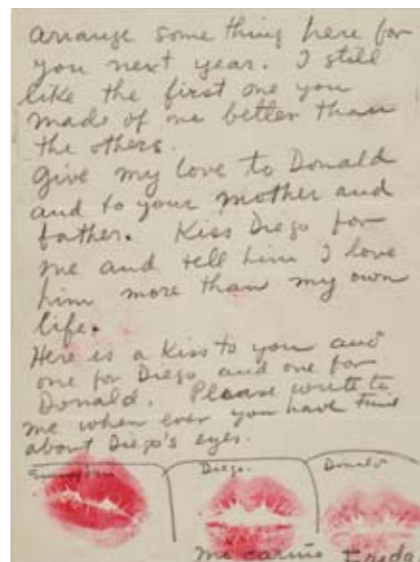 arrange some thing here for
you next year. I still
like the first one you
made of me better than
the others.
Give my love to Donald
and to your mother and
father. Kiss Diego for
me and tell him I love
him more than my own
life.
Here is a Kiss to you and
one for Diego and one for
Donald. Please write to
me when ever you have time
about Diego's eyes.
Diego. Donald
mi cariño Frida.